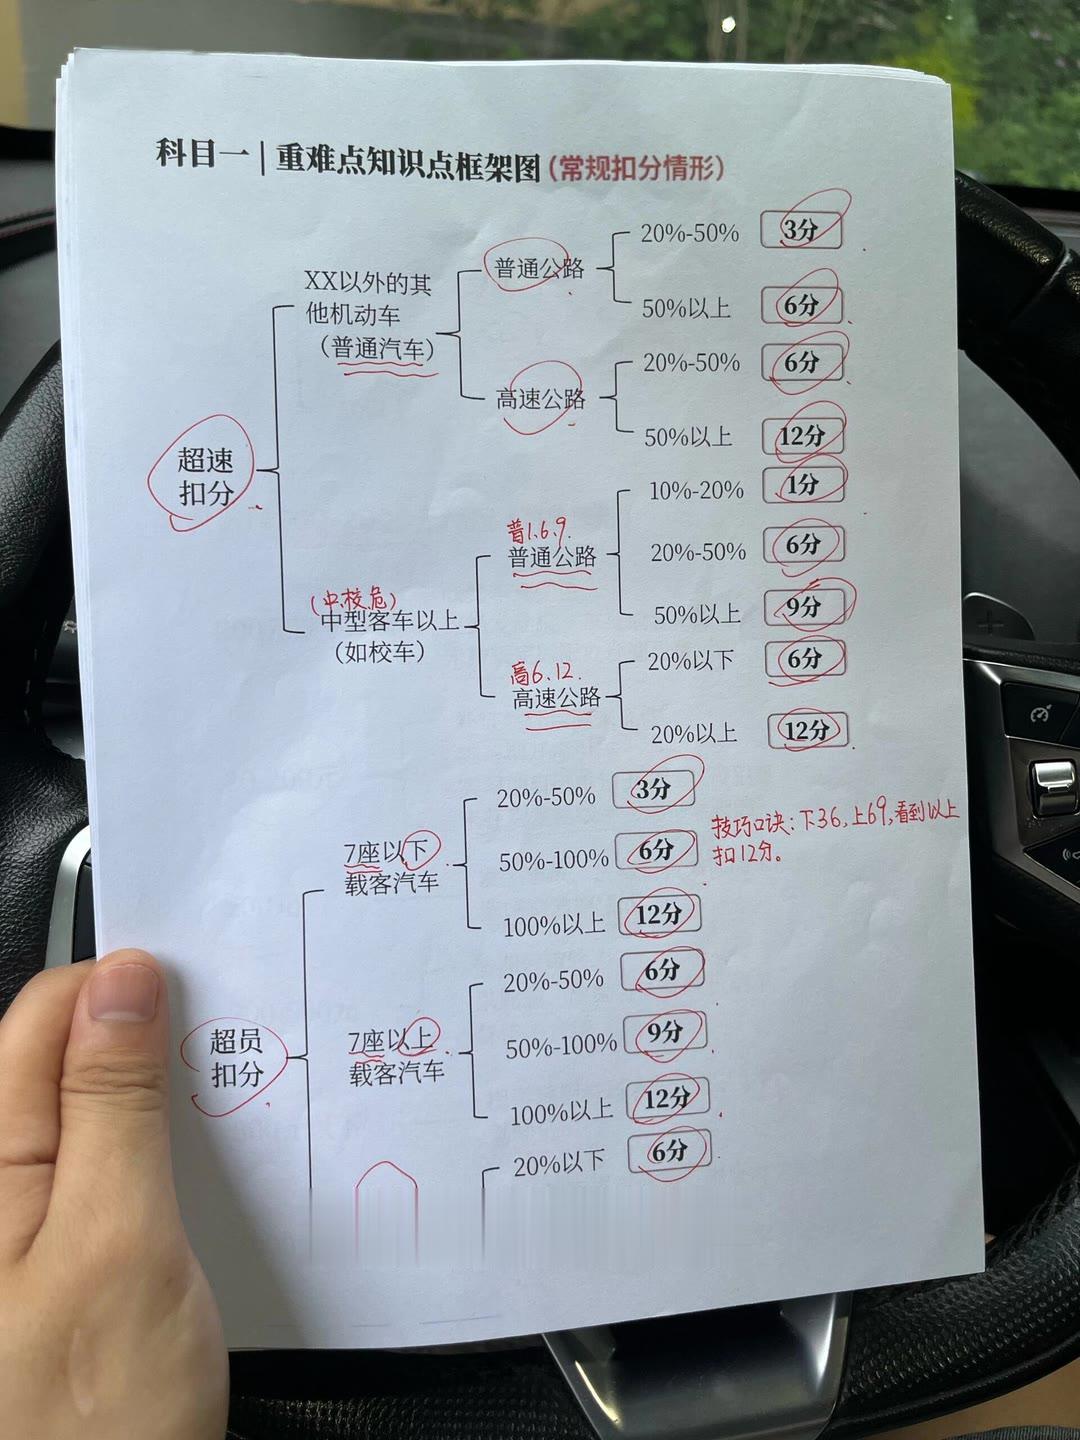 科目一 | 重难点知识点框架图(常规扣分情形)
超速
扣分
XX以外的其
他机动车
(普通汽车)
普通公路
20%-50% 3分
50%以上 6分
高速公路
20%-50% 6分
50%以上 12分
(中.校.危)
中型客车以上
(如校车)
普1.6.9.
普通公路
10%-20% 1分
20%-50% 6分
50%以上 9分
高6.12.
高速公路
20%以下 6分
20%以上 12分
超员
扣分
7座以下
载客汽车
20%-50% 3分
50%-100% 6分
100%以上 12分
技巧口诀:下36,上69,看到以上
扣12分。
7座以上
载客汽车
20%-50% 6分
50%-100% 9分
100%以上 12分
20%以下 6分